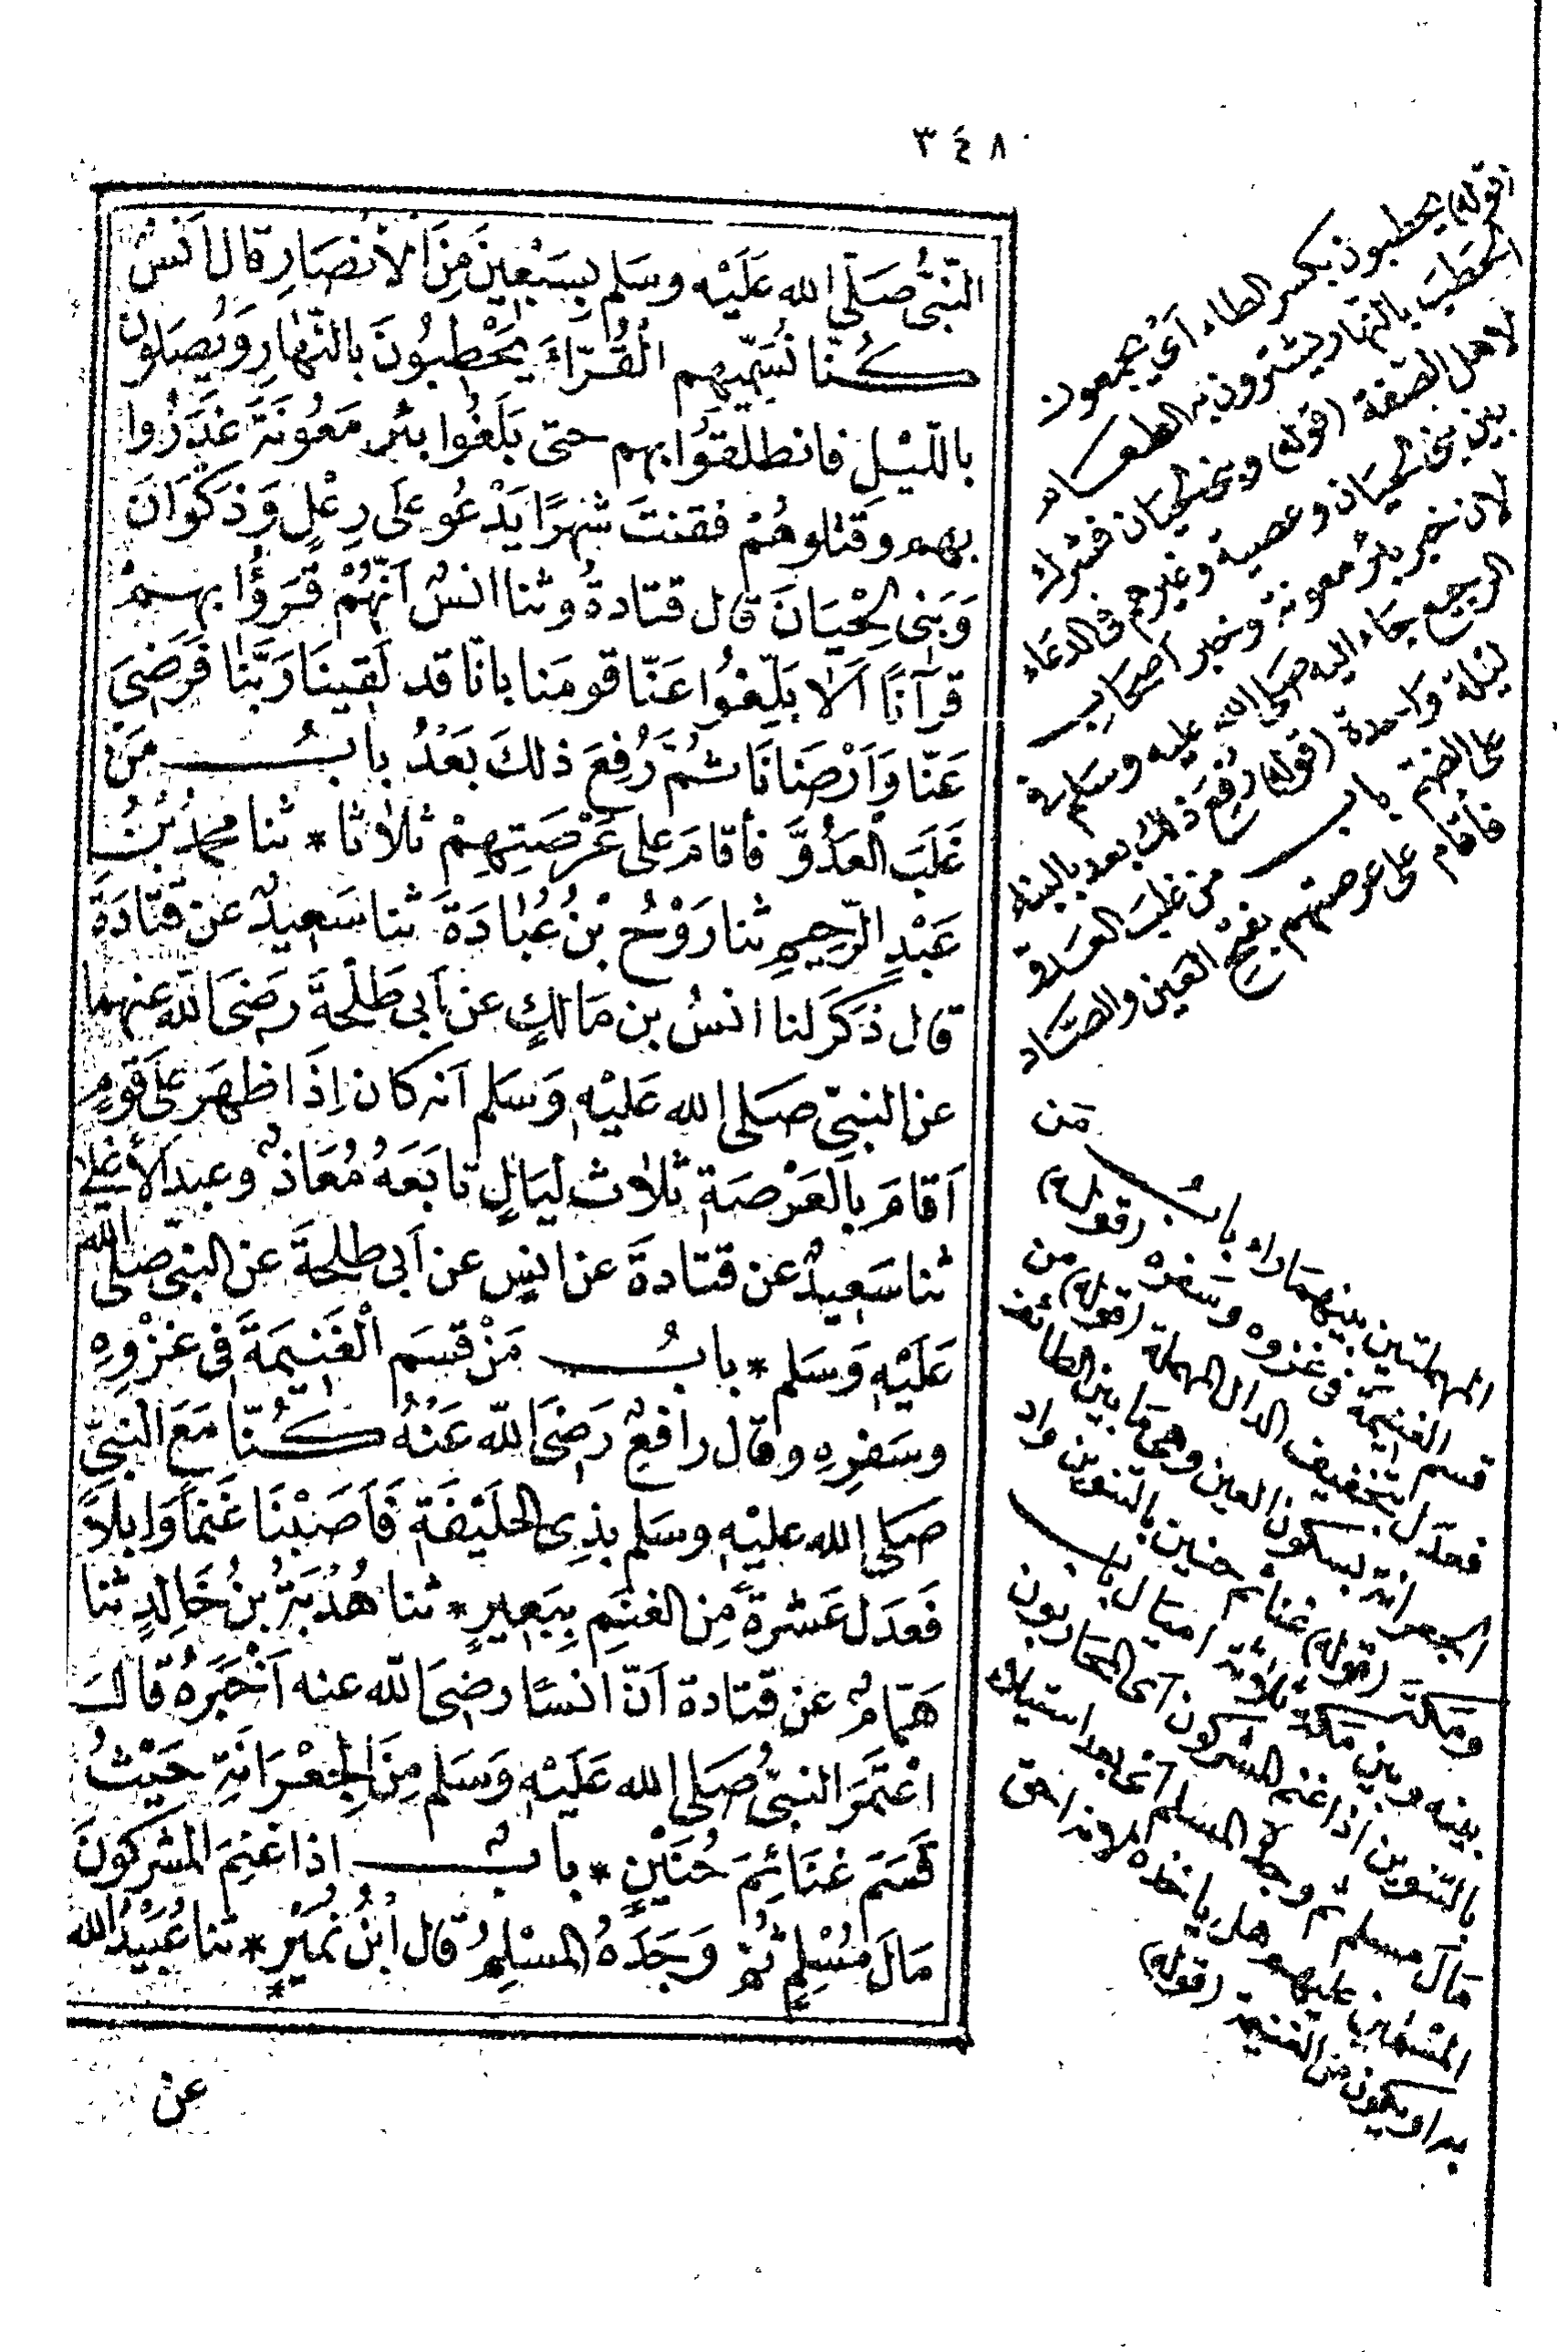 ٣٤٨
النَّبيُّ صَلّى الله عَلَيْه وسَلم بِسَبْعِينَ مِنَ الأنصَارِ قال اَنسٌ
كُنّا نُسَمِّيهِم القُرّاءَ يَحْطِبُونَ بالنّهارِ وَيُصَلون
باللّيْل فانطلَقوُا بهم حتى بَلَغُوا بئر مَعُونَة غَدَرُوا
بهم وقتلوهُمْ فقنتَ شهرًا يَدْعُو على رِعْلٍ وَذكْوَانَ
وَبَنى لِحْيَانَ قال قتادةُ وثنا انسٌ اَنّهُمْ قَرَؤُا بهمْ
قرآنًا اَلا بَلِّغُوا عَنّا قومَنا بانّا قد لَقِينَا رَبَّنا فَرَضِىَ
عَنّا وَاَرْضَانَا ثمَّ رُفِعَ ذلكَ بَعْدُ بابُ مَنْ
غَلَبَ العَدُوَّ فأقامَ على عَرْصَتِهِمْ ثلاثا * ثنا محمدُ بْنُ
عَبْدِ الرّحِيمِ ثنا رَوْحُ بْنُ عُبَادَةَ ثنا سَعِيدٌ عن قتَادَةَ
قال ذكَرَ لنا انسُ بن مَالكٍ عن اَبى طَلْحَةَ رضىَ الله عنهما
عن النبىّ صَلى الله عَليْه وَسَلم اَنه كان اِذَا ظهَرَ على قوْمٍ
اَقامَ بالعَرْصَةِ ثلاث ليَالٍ تابَعَهُ مُعَاذٌ وعبد الأعْلى
ثنا سَعِيدٌ عن قتادةَ عن انسٍ عن اَبى طلحةَ عن النبىّ صلى الله
عَلَيْهِ وَسَلم * بابُ مَنْ قسَم الْغَنِيمَةَ فى غزْوِهِ
وسَفرِهِ وقال رافعٌ رَضىَ الله عَنْهُ كُنّا مَعَ النبىّ
صَلى الله عليْهِ وسَلم بذِى الحلَيْفَةِ فَاَصَبْنَا غَنَمًا وَابِلاً
فَعَدَل عَشرةً مِن الغنَمِ بِبَعِيرٍ * ثنا هُدْبَةُ بنُ خَالِدٍ ثنا
هَمّامٌ عن قتادة اَنّ انسًا رضىَ الله عنه اَخْبَرَهُ قالَ
اعْتمَرَ النبىُّ صَلى الله عَلَيْهِ وَسَلم مِنَ الجِعْرَانَةِ حَيْثُ
قَسَمَ غَنَائِمَ حُنَيْنٍ * بابٌ اذا غنِمَ المشركونَ
مَالَ مُسْلِمٍ ثم وَجَدَهُ المسْلِمُ قال ابْنُ نمَيْرٍ * ثنا عُبَيْدُ الله
عن
(قوله) يحطبون بكسر الطاء اَىْ يجمعون
الحَطَبَ بالنّهار يشترون به الطعام
لاهل الصفة (قوله) وبنى لحيان فشرك
بين بنى لحيَان وعصية وغيرهم فى الدعَاء
لان خبر بئر معونة وخبر اصحاب
الرجيع جاء اليه صَلى الله عليه وسلم فى
ليلة وَاحدة (قوله) رُفِعَ ذلك بعد بالبناء
على الضم باب من غلبَ العدوّ
فأقام على عرصتهم بفتح العين والصّاد
المهملتين بينهمَا راء بابُ مَن
قسم الغنيمَة فى غزوه وسَفره (قوله)
فعدَل بتخفيف الدال المهملة (قوله) من
الجعرانة بسكون العين وهى مَا بين الطائف
ومَكة (قوله) غنائم حنين بالتنوين واد
بينه وبين مكة ثلاثة اميَال باب
بالتنوين اذا غنم المشركون اَى المحَاربون
مَالَ مسلم ثم وجَدَه المسلم اَى بعد استيلاء
المسْلمين عليهم هل يَاخذه لانه احق
به او يكون من الغنيمة (قوله)